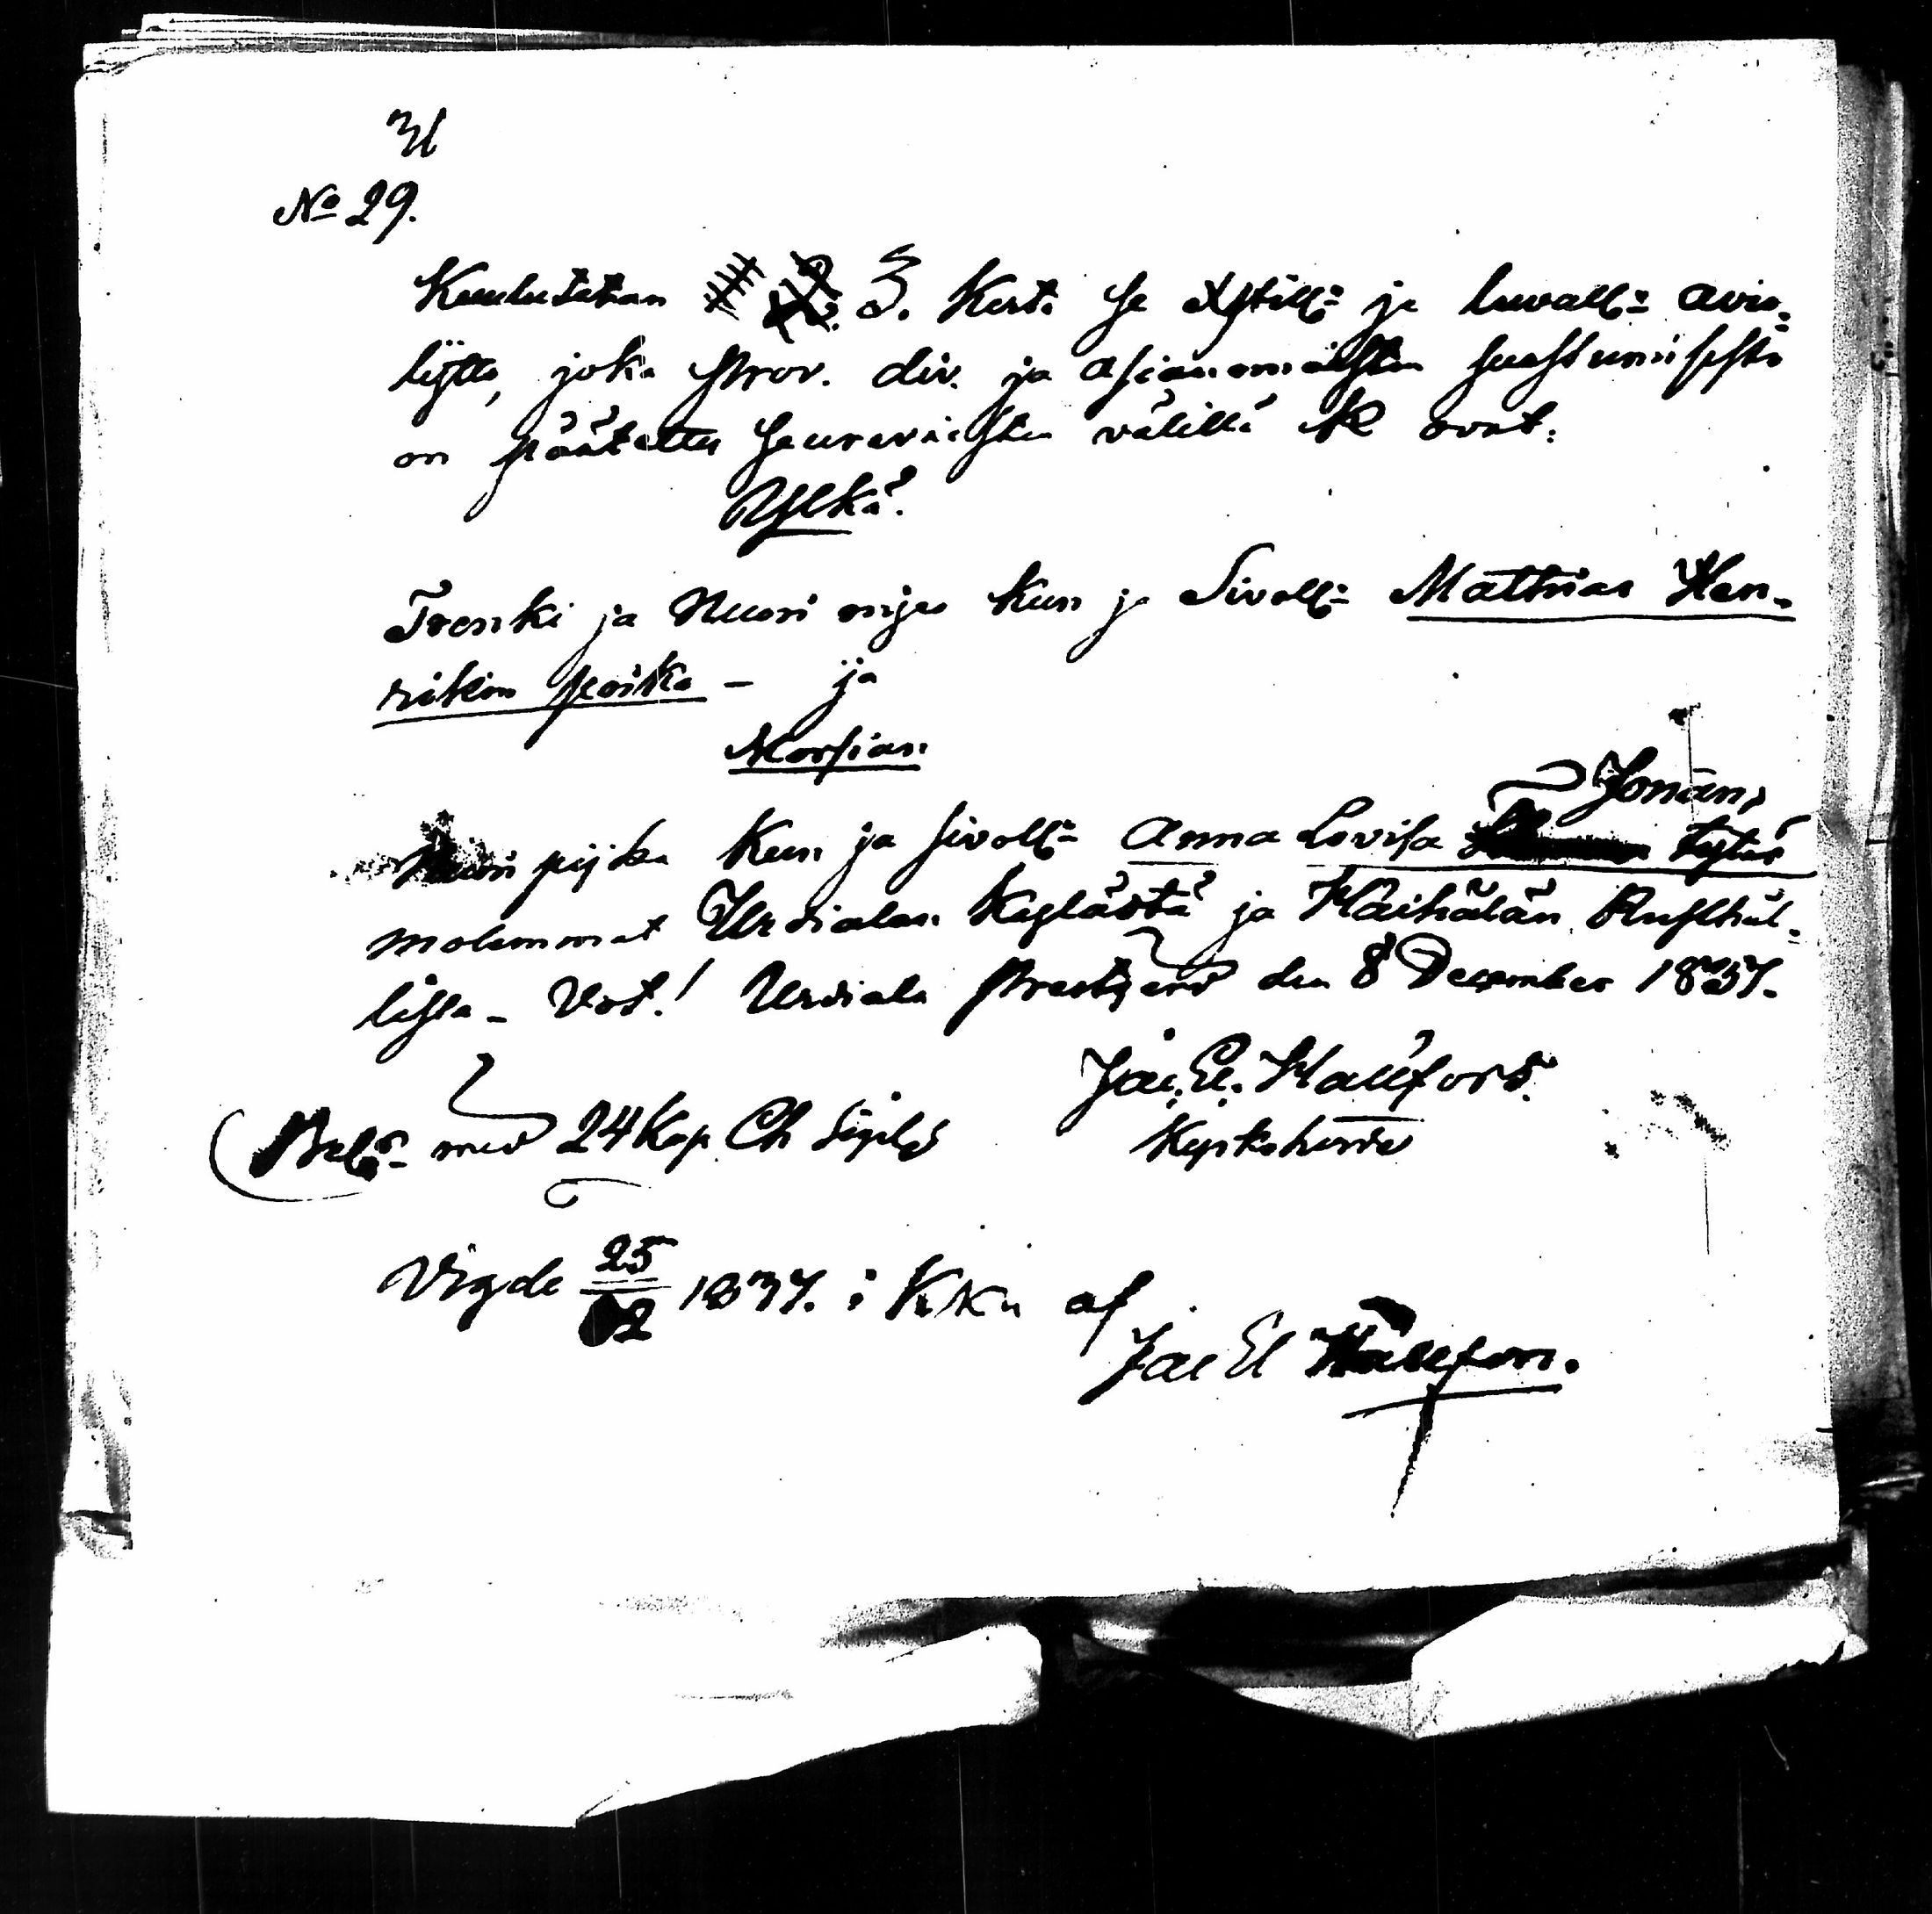 No 29.
Kuulutetan 3. Kert. se Xstill: ja luvall: avio-
lijtto, joka prov. div. ja asianomaisten suostumisesta
on päätetty seuravaisten välillä NB ovat:
Ylkä.
Trenki ja Nuori mjes kun ja Sivoll: Mattias Hen-
rikin poika - ja
Morsian
Jonan,
Nuori pijka Kun ja sivoll: Anna Lovisa tytär
molemmat Urdialan Kylästä ja Käihälän Rusthål-
lissa - Vot! Urdiala Prestgård den 8 December 1837.
Jac. El. Hallfors.
Kyrkoherde
Bel: med 24 Kop. Ch Sigild
Vigde 25/12 1837. i Kku af
Jac El Hallfors.